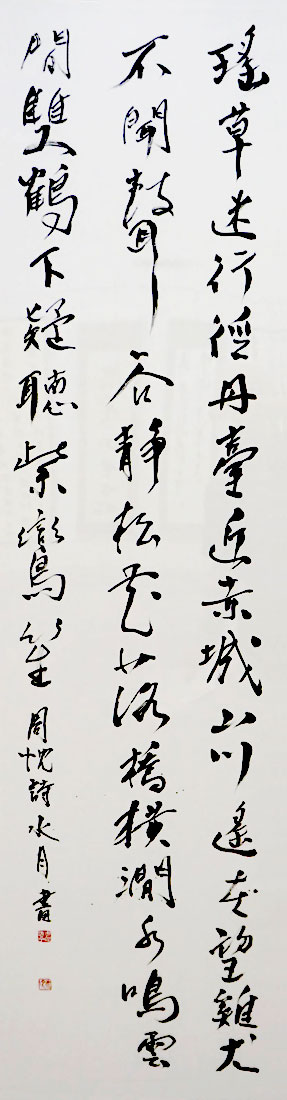 瑤草迷行徑丹臺近赤城山川遥在望雞犬
不聞聲谷靜松花落橋橫澗水鳴雲
間雙鶴下疑聽紫鸞笙周忱詩水月書